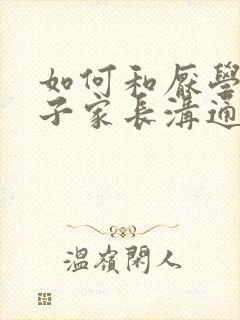 如何和厭學
子家長溝通
溫嶺閑人